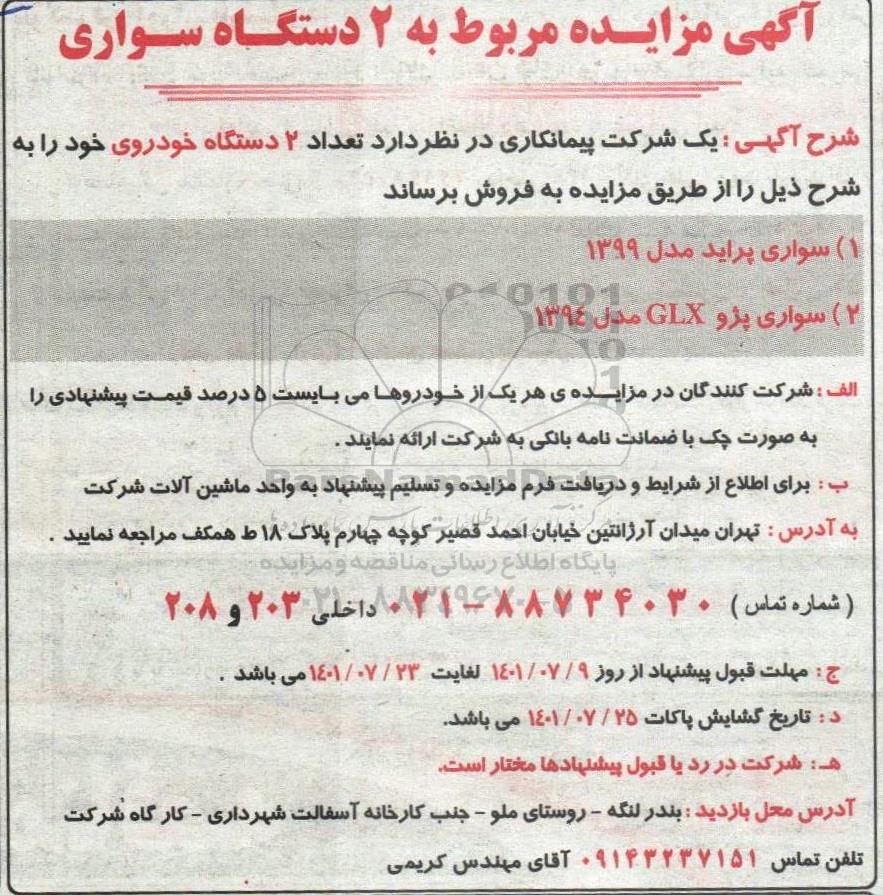 آگهی مزایـده مربوط به ۲ دستگاه سواری
شرح آگهی : یک شرکت پیمانکاری در نظر دارد تعداد ۲ دستگاه خودروی خود را به
شرح ذیل را از طریق مزایده به فروش برساند
۱) سواری پراید مدل ۱۳۹۹
۲) سواری پژو GLX مدل ۱۳۹٤
الف : شرکت کنندگان در مزایـده ی هر یک از خودروها می بایست ۵ درصد قیمت پیشنهادی را
به صورت چک با ضمانت نامه بانکی به شرکت ارائه نمایند .
ب : برای اطلاع از شرایط و دریافت فرم مزایده و تسلیم پیشنهاد به واحد ماشین آلات شرکت
به آدرس : تهران میدان آرژانتین خیابان احمد قصیر کوچه چهارم پلاک ۱۸ ط همکف مراجعه نمایید .
پایگاه اطلاع رسانی مناقصه و مزایده
( شماره تماس ) ۸۸۷۳۴۰۳۰ – ۰۲۱ داخلی ۲۰۳ و ۲۰۸
ج : مهلت قبول پیشنهاد از روز ۹ / ۰۷ / ۱٤۰۱ لغایت ۲۳ / ۰۷ / ۱٤۰۱ می باشد .
د : تاریخ گشایش پاکات ۲۵ / ۰۷ / ۱٤۰۱ می باشد.
هـ : شرکت در رد یا قبول پیشنهادها مختار است.
آدرس محل بازدید : بندر لنگه – روستای ملو – جنب کارخانه آسفالت شهرداری – کار گاه شرکت
تلفن تماس ۰۹۱۴۳۲۳۷۱۵۱ آقای مهندس کریمی